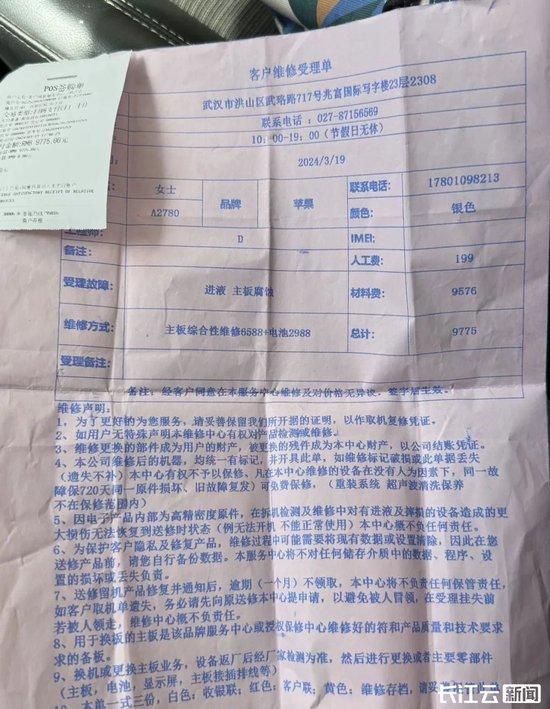 POS签购单
金额:RMB 9775.00元
客户维修受理单
武汉市洪山区武珞路717号兆富国际写字楼23层2308
联系电话：027-87156569
10：00-19：00（节假日无休）
2024/3/19
女士
联系电话:
17801098213
A2780
品牌
苹果
颜色:
银色
工程师:
D
IMEI:
备注:
人工费:
199
受理故障:
进液 主板腐蚀
材料费:
9576
维修方式:
主板综合性维修6588+电池2988
总计:
9775
受理备注:
备注：经客户同意在本服务中心维修及对价格无异议，签字后生效。
维修声明：
1、为了更好的为您服务，请妥善保留我们所开据的证明，以作取机复修凭证。
2、如用户无特殊声明本维修中心有权对产品检测或维修。
3、维修更换的部件成为用户的财产，被更换的残件成为本中心财产，以公司结账凭证。
4、本公司维修后的机器，均统一有标记，并开具此单，如维修标记破损或此单据丢失
（遗失不补）本中心有权不予以保修。凡在本中心维修的设备在没有人为因素下，同一故
障保720天同一原件损坏、旧故障复发）可免费保修，（重装系统 超声波清洗保养
不在保修范围内）
5、因电子产品内部为高精密度原件，在拆机检测及维修中对有进液及摔损的设备造成的更
大损伤无法恢复到送修时状态（例无法开机 不能正常使用）本中心概不负任何责任。
6、为保护客户隐私及修复产品，维修过程中可能需要将现有数据或设置清除，因此在您
送修产品前，请您自行备份数据。本服务中心将不对任何储存介质中的数据、程序、设
置的损坏或丢失负责。
7、送修留机产品修复并通知后，逾期（一个月）不领取，本中心将不负责任何保管责任，
如客户取机单遗失，务必请先向原送修本中心提申请，以避免被人冒领，在受理挂失前
若被人领走，维修中心概不负责。
8、用于换板的主板是该品牌服务中心或授权保修中心维修好的符和产品质量和技术要求
求的备板。
9、换机或更换主板业务，设备返厂后经厂家检测为准，然后进行更换或者主要零部件
（主板，电池，显示屏，主板接插排线等）
10、本单一式三份，白色：收银联；红色：客户联；黄色：维修存档，请妥善
长江云新闻